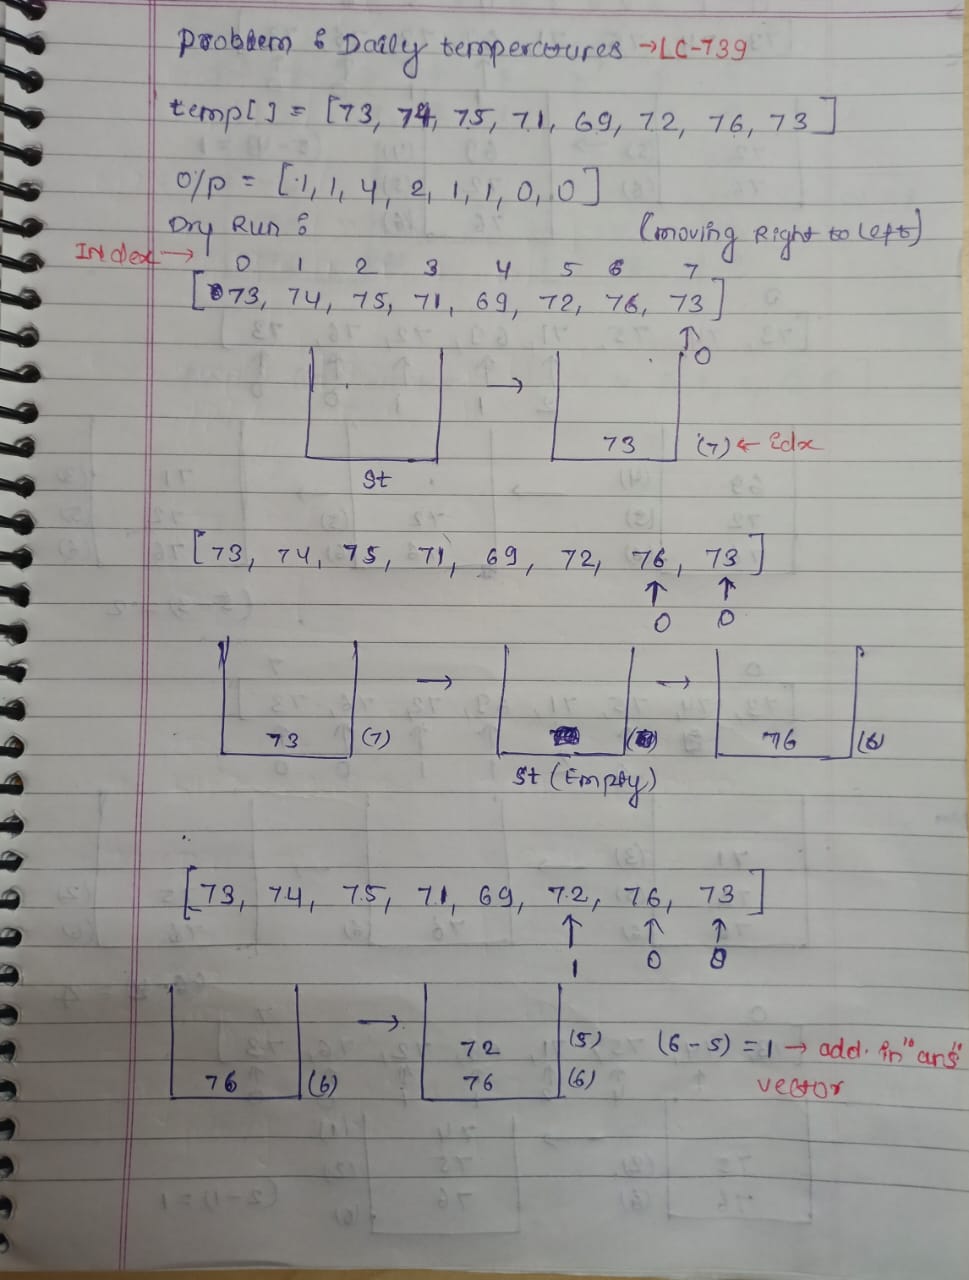 Problem : Daily temperatures →LC-739
temp[] = [73, 74, 75, 71, 69, 72, 76, 73]
O/p = [1, 1, 4, 2, 1, 1, 0, 0]
Dry Run : (moving Right to left)
Index → 0 1 2 3 4 5 6 7
[73, 74, 75, 71, 69, 72, 76, 73]
↑
0
→
73 (7) ← idx
st
[73, 74, 75, 71, 69, 72, 76, 73]
↑ ↑
0 0
→ →
73 (7) 76 (6)
St (Empty)
[73, 74, 75, 71, 69, 72, 76, 73]
↑ ↑ ↑
1 0 0
→
72 (5) (6-5) = 1 → add in "ans"
76 (6) 76 (6) vector